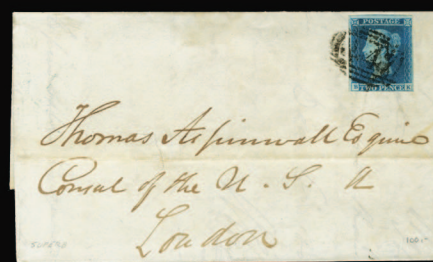 POSTAGE
TWO PENCE
Thomas Aspinwall Esquire
Consul of the U. S. A
London